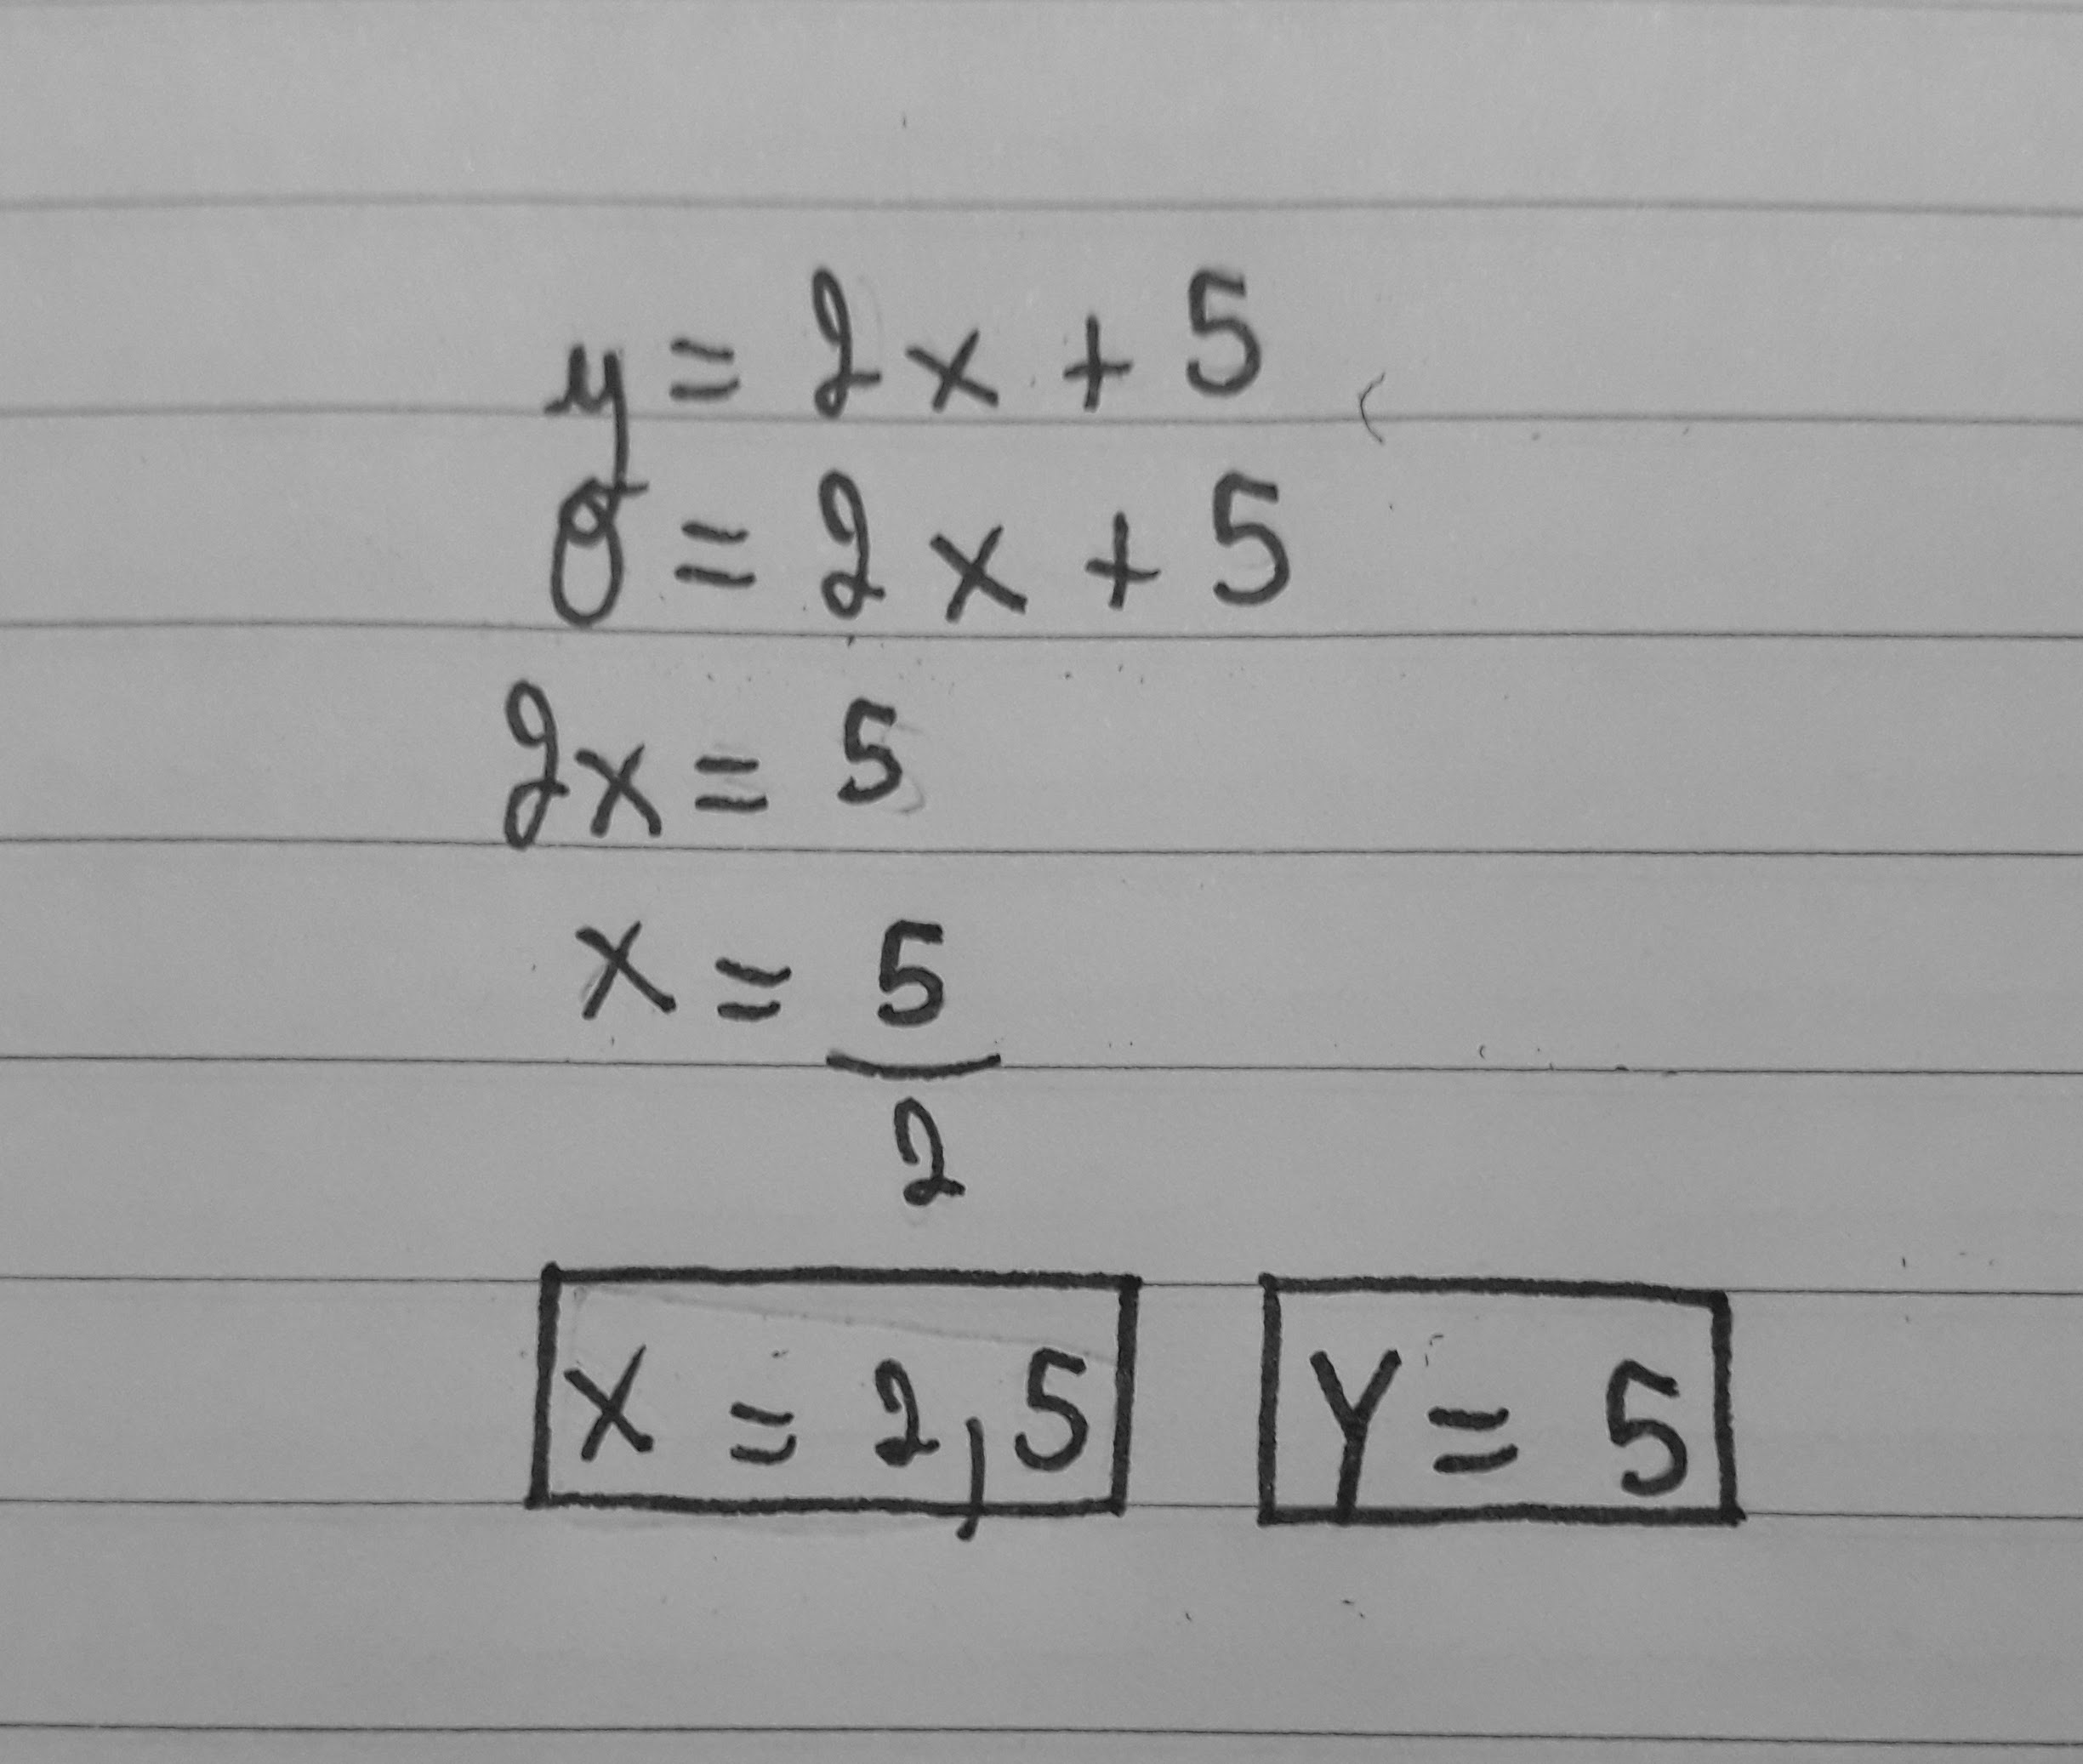 y = 2x + 5
0 = 2x + 5
2x = 5
x = 5
2
x = 2,5 Y = 5